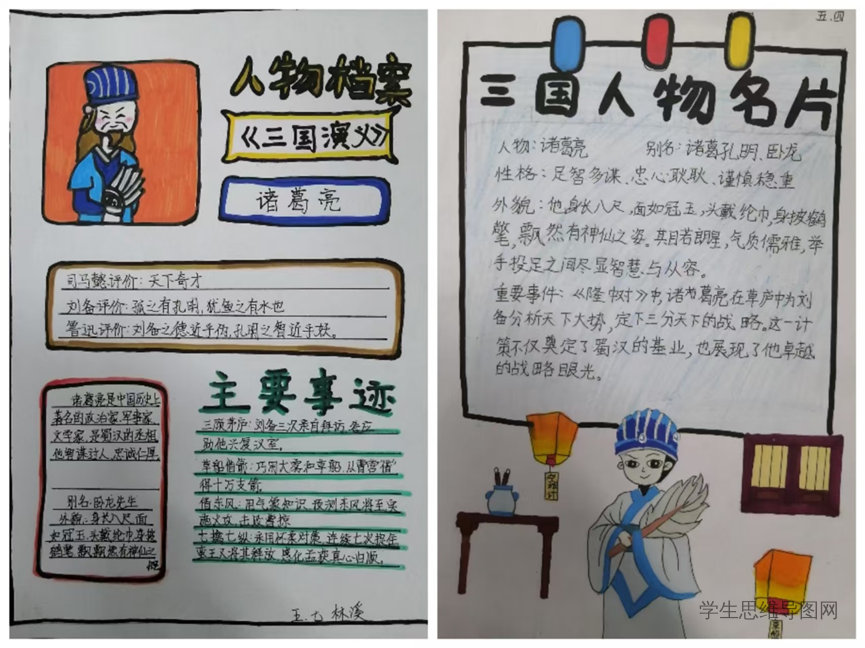 人物档案
《三国演义》
诸葛亮
司马懿评价:天下奇才
刘备评价:孤之有孔明,犹鱼之有水也
鲁迅评价:刘备之德近乎伪,孔明之智近乎妖。
主要事迹
诸葛亮是中国历史上
著名的政治家、军事家、
文学家,是蜀汉的丞相
他智谋过人,忠诚仁厚,
别名:卧龙先生
外貌:身长八尺,面
如冠玉,头戴纶巾,身披
鹤氅,飘飘然有神仙之
概
三顾茅庐:刘备三次亲自拜访,
助他兴复汉室。
草船借箭:巧用大雾和草船,从曹营“借”
得十万支箭。
借东风:用气象知识,预测东风将至
火攻,击败曹操
七擒七纵:采用怀柔对策,连续七次擒
孟王又将其释放,感化
五.七 林溪
五.四
三国人物名片
人物:诸葛亮 别名:诸葛孔明、卧龙
性格:足智多谋、忠心耿耿、谨慎稳重
外貌:他身长八尺,面如冠玉,头戴纶巾,身披鹤
氅,飘然有神仙之姿。其目若朗星,气质儒雅,举
手投足之间尽显智慧与从容。
重要事件:《隆中对》中,诸葛亮在草庐中为刘
备分析天下大势,定下三分天下的战略。这一计
策不仅奠定了蜀汉的基业,也展现了他卓越
的战略眼光。
学生思维导图网